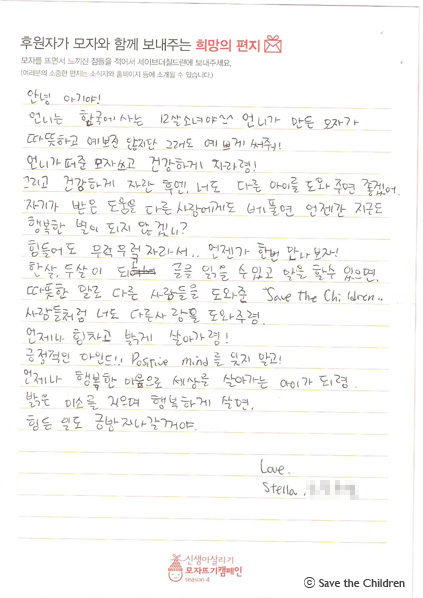 후원자가 모자와 함께 보내주는 희망의 편지
모자를 뜨면서 느끼신 점들을 적어서 세이브더칠드런에 보내주세요.
(여러분의 소중한 편지는 소식지와 홈페이지 등에 소개될 수 있습니다.)
안녕 아기야!
언니는 한국에 사는 12살소녀야^^ 언니가 만든 모자가
따뜻하고 예쁘진 않지만 그래도 예쁘게 써줘!
언니가 떠준 모자쓰고 건강하게 자라렴!
그리고 건강하게 자란 후엔, 너도 다른 아이를 도와주면 좋겠어.
자기가 받은 도움을 다른사람에게도 베풀면 언젠간 지구도
행복한 별이 되지 않겠니?
힘들어도 무럭무럭 자라서.. 언젠가 한번 만나보자!
한살, 두살이 되고 글을 읽을 수 있고 말을 할 수 있으면,
따뜻한 말로 다른 사람들을 도와준 "Save the Children..
사람들처럼 너도 다른사람을 도와주렴.
언제나 힘차고 밝게 살아가렴!
긍정적인 마인드!! Positive mind를 잊지 말고!
언제나 행복한 마음으로 세상을 살아가는 아이가 되렴.
밝은 미소를 지으며 행복하게 살면,
힘든 일도 금방지나갈거야.
Love.
Stella.
신생아살리기
모자뜨기캠페인
season 4
ⓒ Save the Children